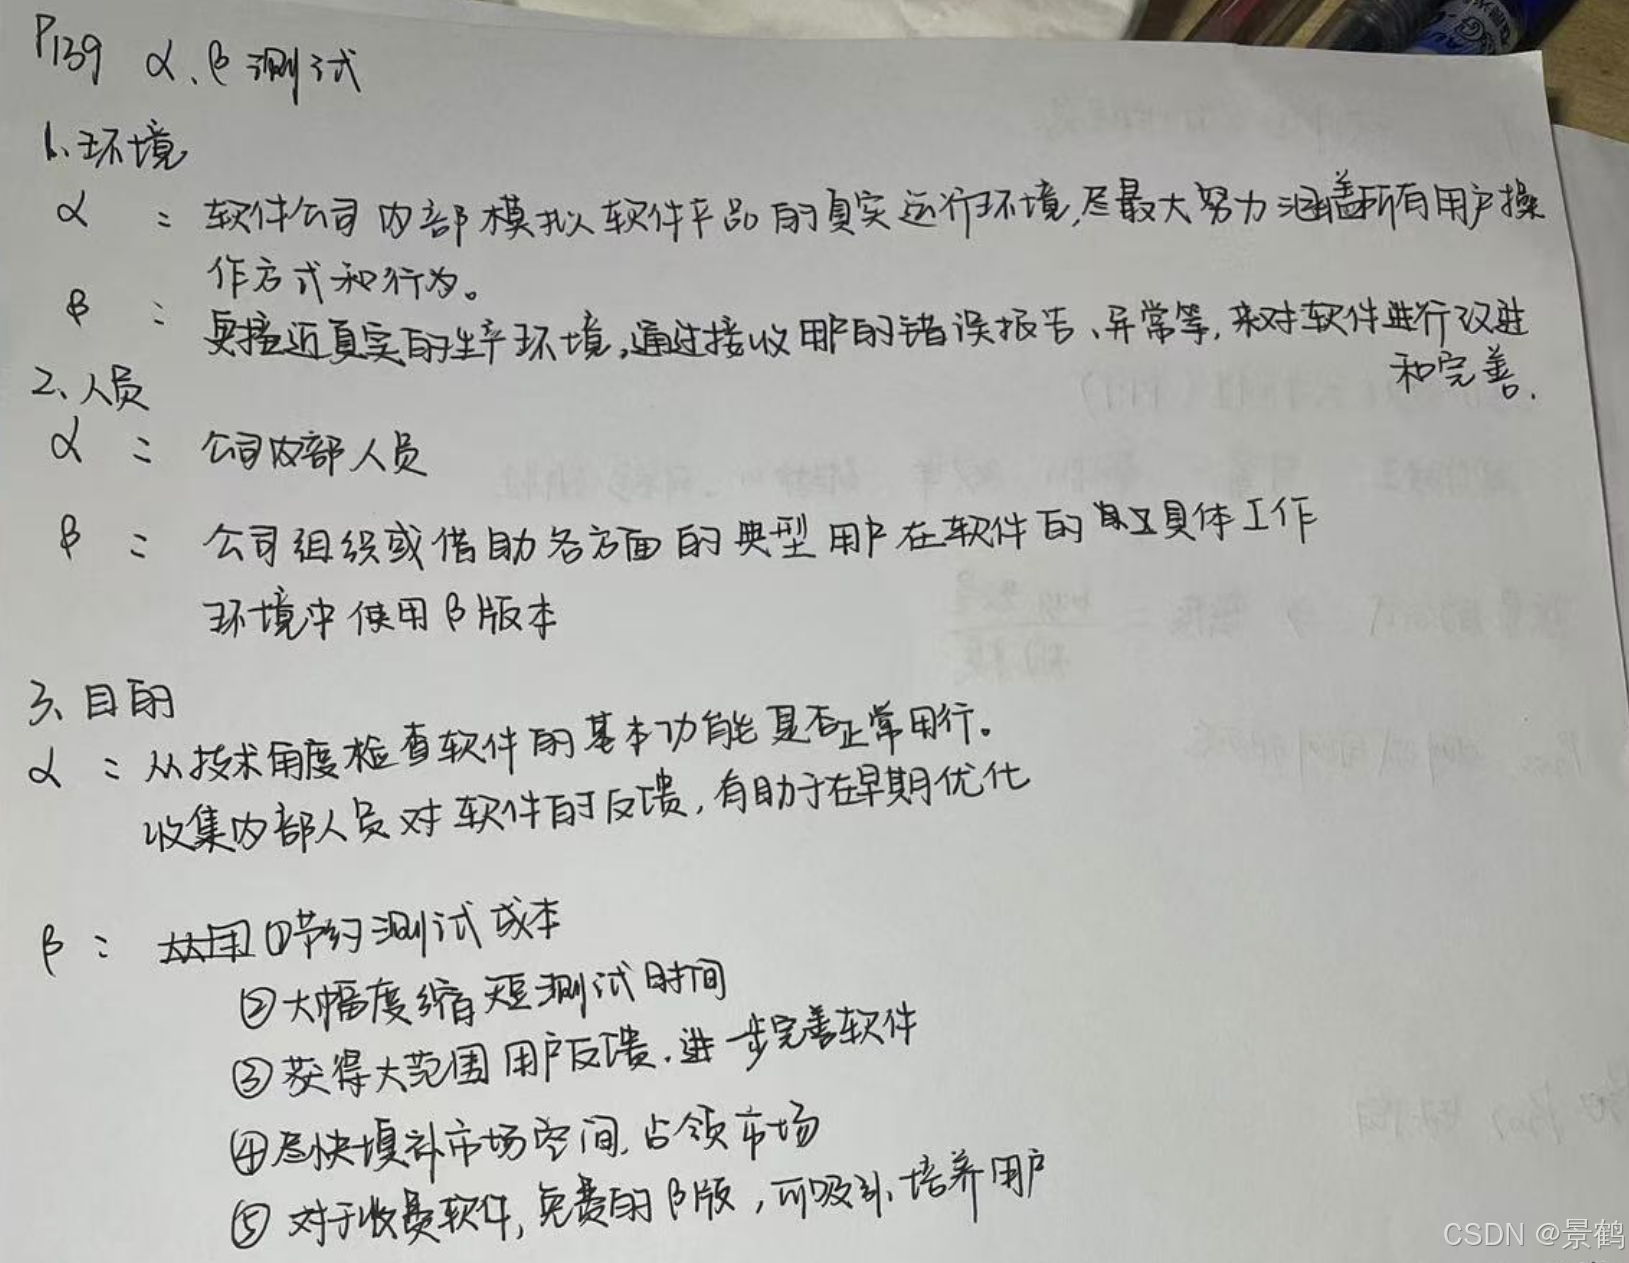 P139 α、β测试
1、环境
α : 软件公司内部模拟软件产品的真实运行环境,尽最大努力涵盖所有用户操
作方式和行为。
β : 更接近真实的生产环境,通过接收用户的错误报告、异常等,来对软件进行改进
和完善.
2、人员
α : 公司内部人员
β : 公司组织或借助各方面的典型用户在软件的具体工作
环境中使用β版本
3、目的
α : 从技术角度检查软件的基本功能是否正常用行。
收集内部人员对软件的反馈,有助于在早期优化
β : ①节约测试成本
②大幅度缩短测试时间
③获得大范围用户反馈.进一步完善软件
④尽快填补市场空间,占领市场
⑤对于收费软件,免费的β版,可吸引、培养用户
CSDN @景鹤